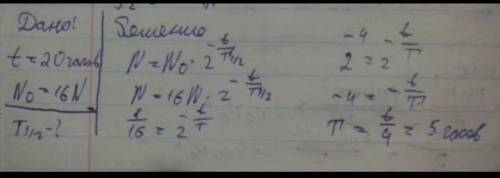 Дано:
t = 20 часов
N₀ = 16N
T₁/₂ - ?
Решение
N = N₀ · 2^(-t/T₁/₂)
N = 16N · 2^(-t/T₁/₂)
1/16 = 2^(-t/T)
2^(-4) = 2^(-t/T)
-4 = -t/T
T = t/4 = 5 часов